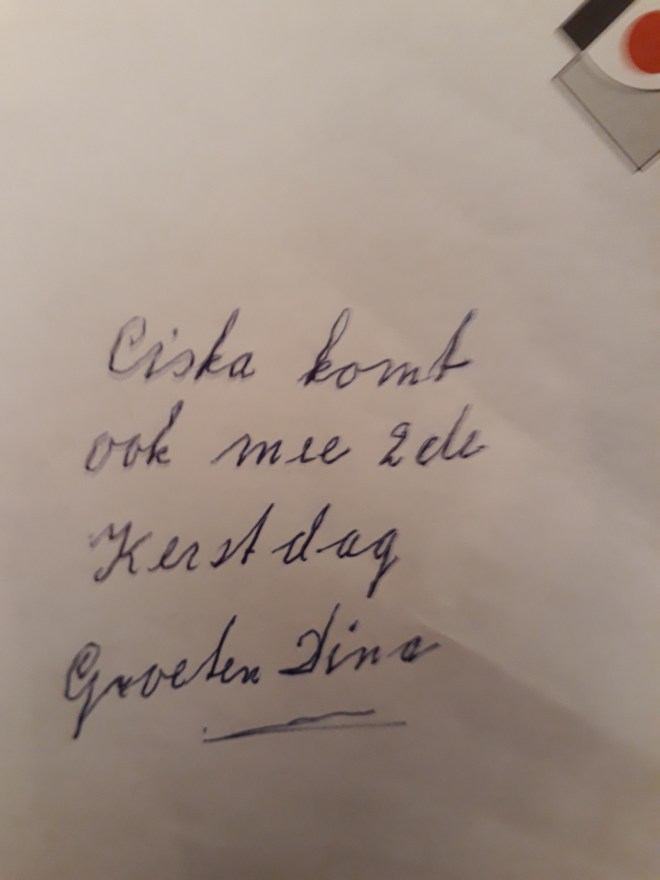 Ciska komt
ook mee 2de
Kerstdag
Groeten Dina